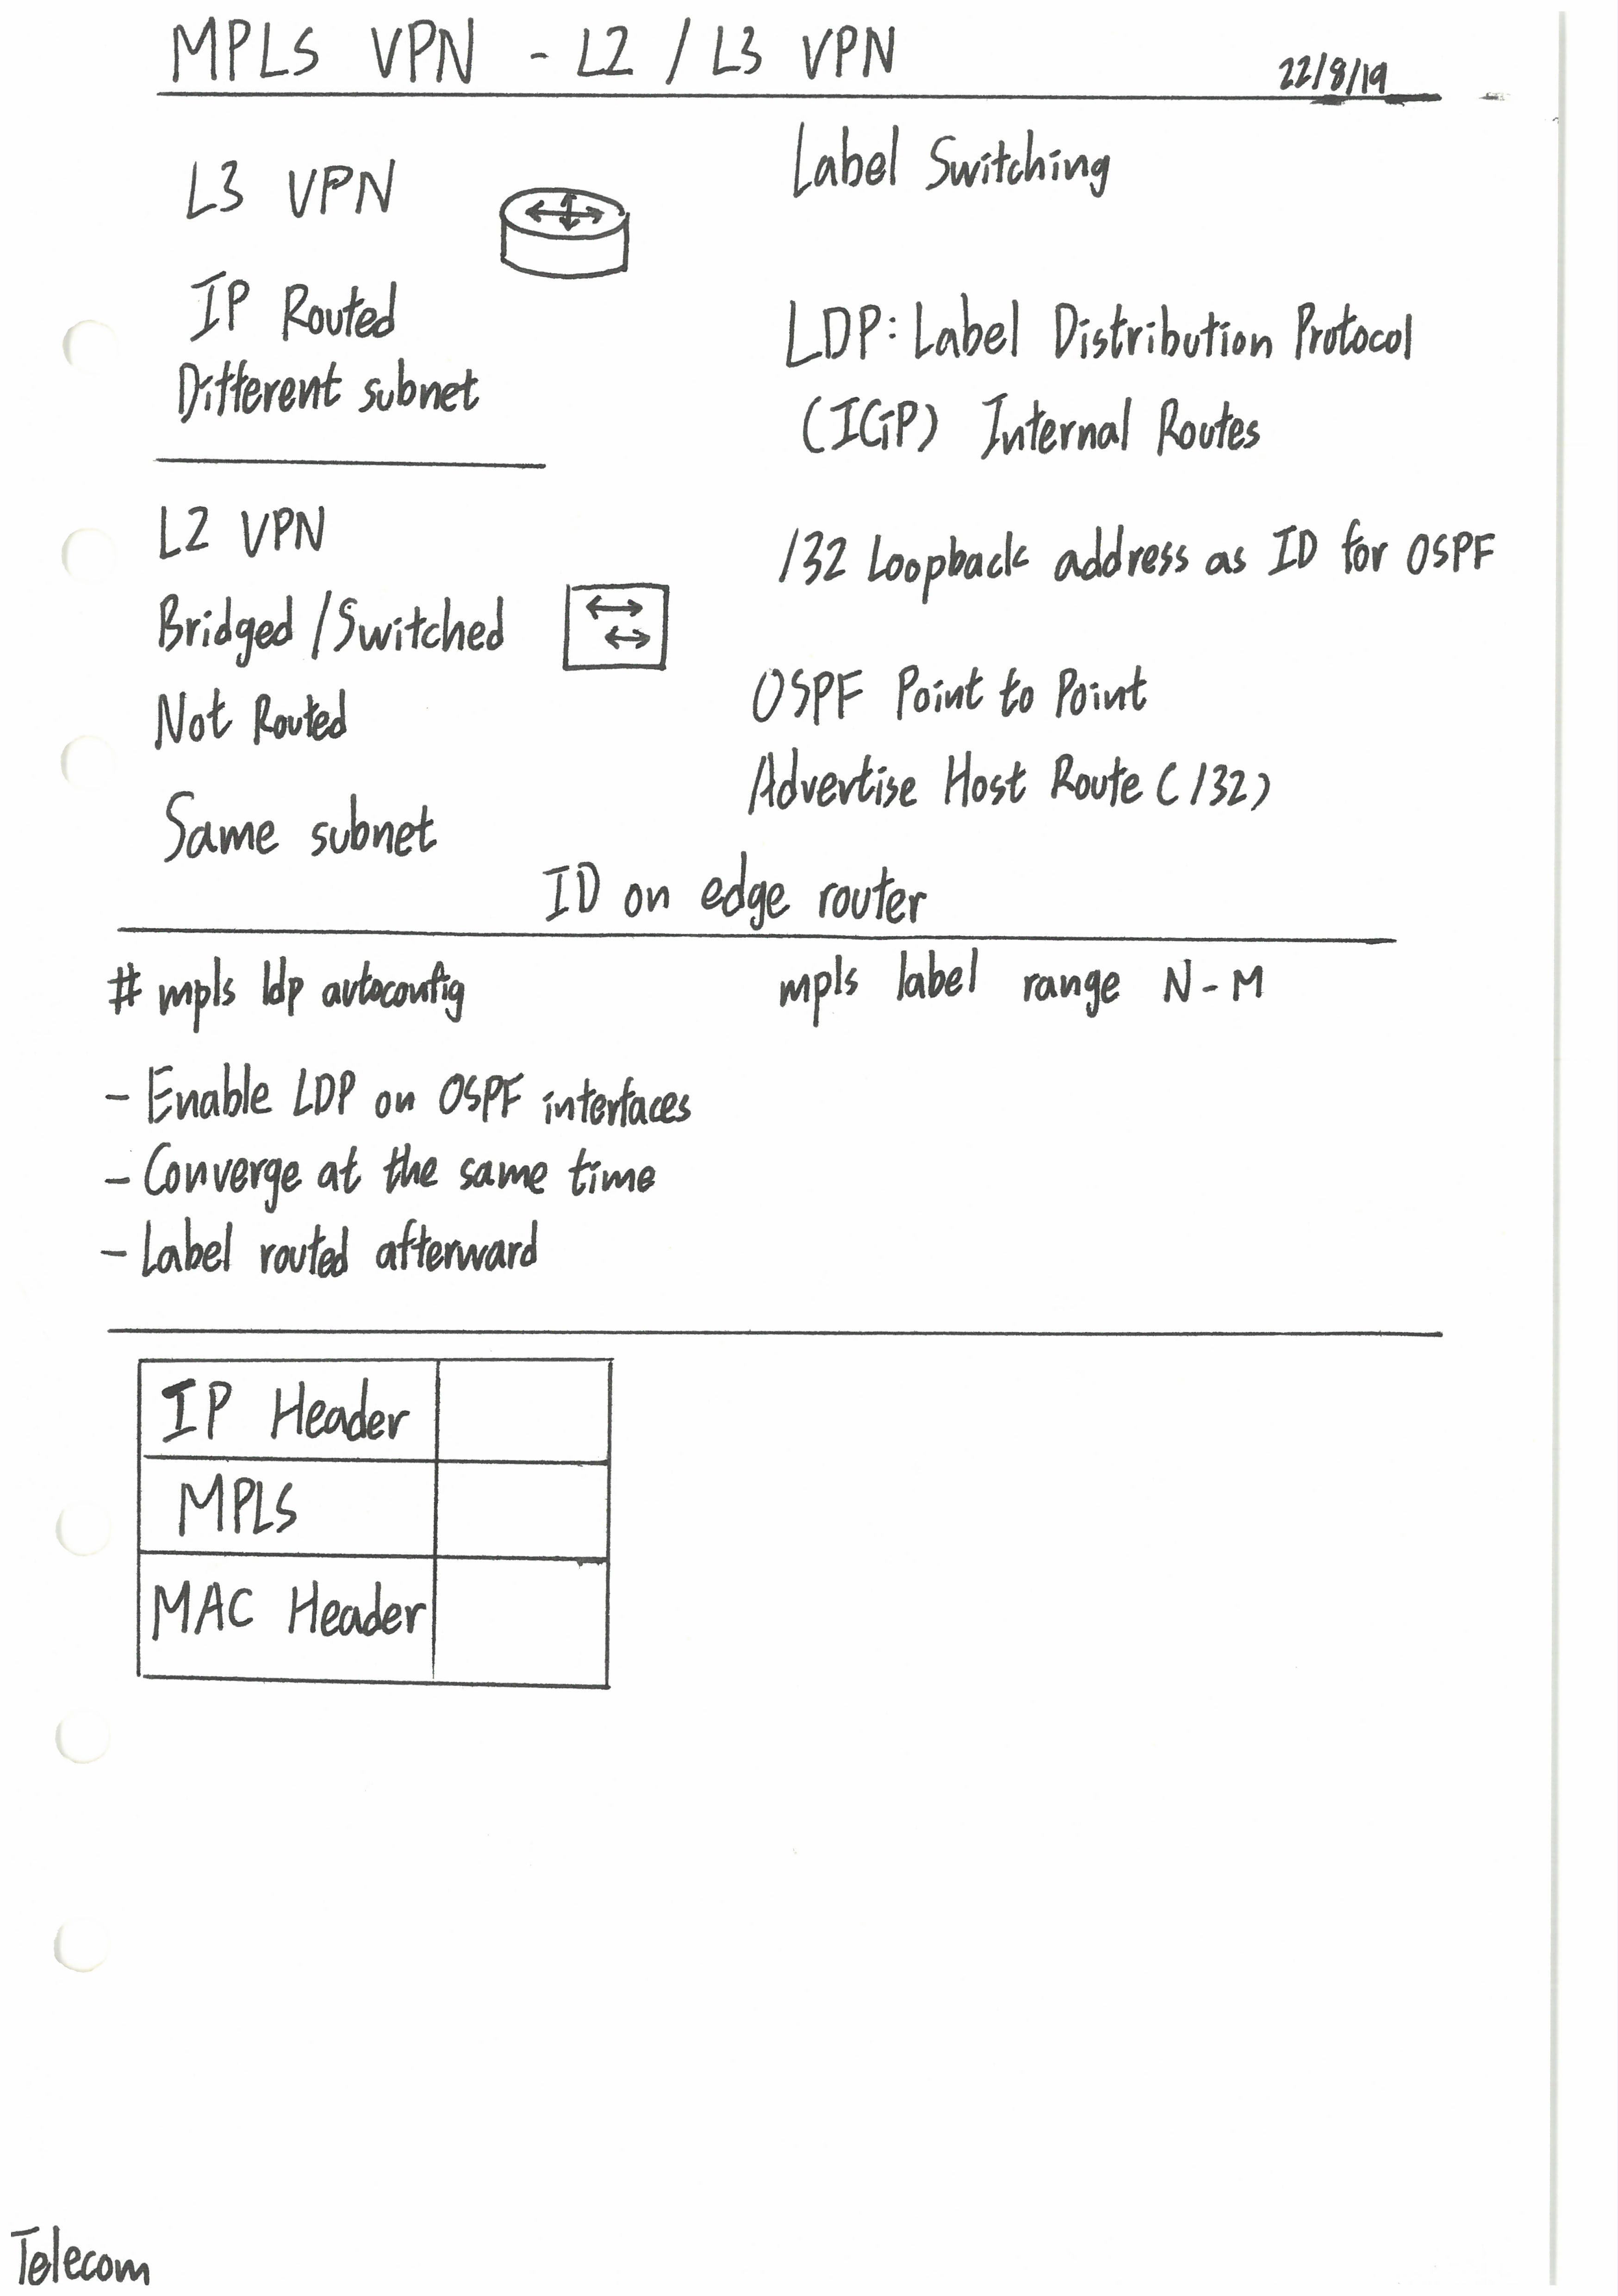 MPLS VPN - L2 / L3 VPN
22/8/19
L3 VPN
IP Routed
Different subnet
L2 VPN
Bridged /Switched
Not Routed
Same subnet
Label Switching
LDP: Label Distribution Protocol
(IGP) Internal Routes
/32 Loopback address as ID for OSPF
OSPF Point to Point
Advertise Host Route (/32)
ID on edge router
# mpls ldp autoconfig
- Enable LDP on OSPF interfaces
- Converge at the same time
- Label routed afterward
mpls label range N-M
IP Header
MPLS
MAC Header
Telecom